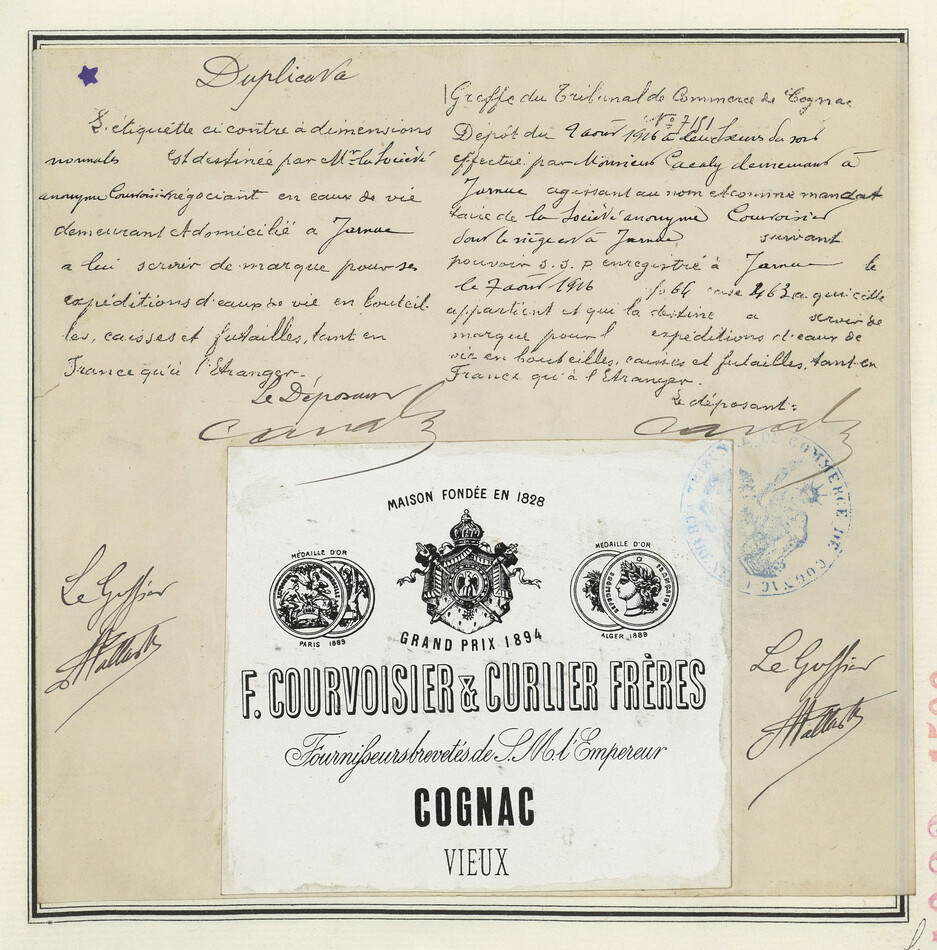 Duplicata
L'étiquette ci contre à dimensions
normales est destinée par Mr. la Société
anonyme Courvoisier négociant en eaux de vie
demeurant et domicilié à Jarnac
a lui servir de marque pour ses
expéditions d'eaux de vie en bouteil-
les, caisses et futailles, tant en
France qu'à l'Etranger.
Le Déposant
Greffe du Tribunal de Commerce de Cognac
No 7151
Dépôt du 9 août 1916 à heures du soir
effectué par Monsieur demeurant à
Jarnac agissant au nom et comme mandat
taire de la Société anonyme Courvoisier
dont le siège est à Jarnac suivant
pouvoir s.s.p. enregistré à Jarnac le
le 7 août 1916 fo 64 case 463 a qui cette
appartient et qui la destine a servir de
marque pour l expéditions d'eaux de
vie en bouteilles, caisses et futailles, tant en
France qu'à l'Etranger.
Le déposant:
TRIBUNAL DE COMMERCE DE COGNAC
MAISON FONDÉE EN 1828
MÉDAILLE D'OR
MÉDAILLE D'OR
PARIS 1889
GRAND PRIX 1894
ALGER 1888
F. COURVOISIER & CURLIER FRÈRES
Fournisseurs brevetés de S. M. l'Empereur
COGNAC
VIEUX
Le Greffier
Le Greffier